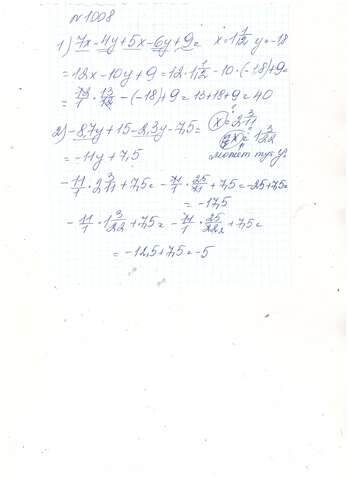 №1008
1) 7x-4y+5x-6y+9= x=1 1/12 y=-1,8
=12x-10y+9=12·1 1/12-10·(-1,8)+9=
=12/1·13/12-(-18)+9=13+18+9=40
2) -8,7y+15-2,3y-7,5= x=2 3/11
=-11y+7,5 x=1 3/22
может тут y?
-11/1·2 3/11+7,5=-11/1·25/11+7,5=-25+7,5=
=-17,5
-11/1·1 3/22+7,5=-11/1·25/22+7,5=
=-12,5+7,5=-5